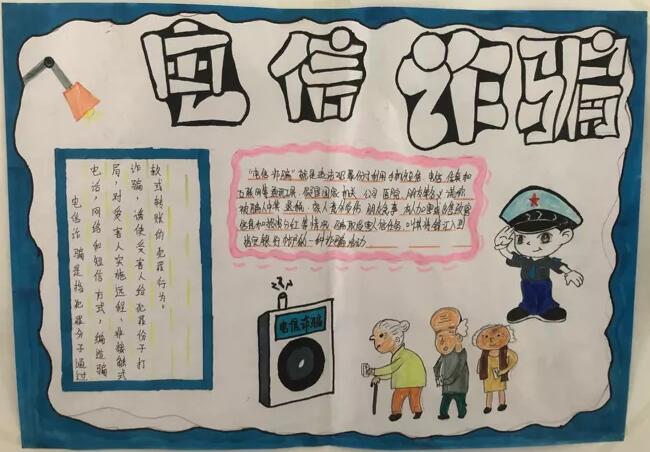 电信诈骗
"电信诈骗"就是违法犯罪份子利用手机短信、电话、传真和
互联网等通讯工具,假冒国家机关、公司、医院、朋友等名义谎称
被骗人中奖、退税、家人意外受伤、朋友急事、有人加害或出售致富
信息和投资分红等情况,骗取受害人的信任,
指定银行帐户的一种诈骗活动
电信诈骗是指犯罪分子通过
电话,网络和短信方式,编造骗
局,对受害人实施远程,非接触式
诈骗,诱使受害人给犯罪份子打
款或转账的犯罪行为。
电信诈骗